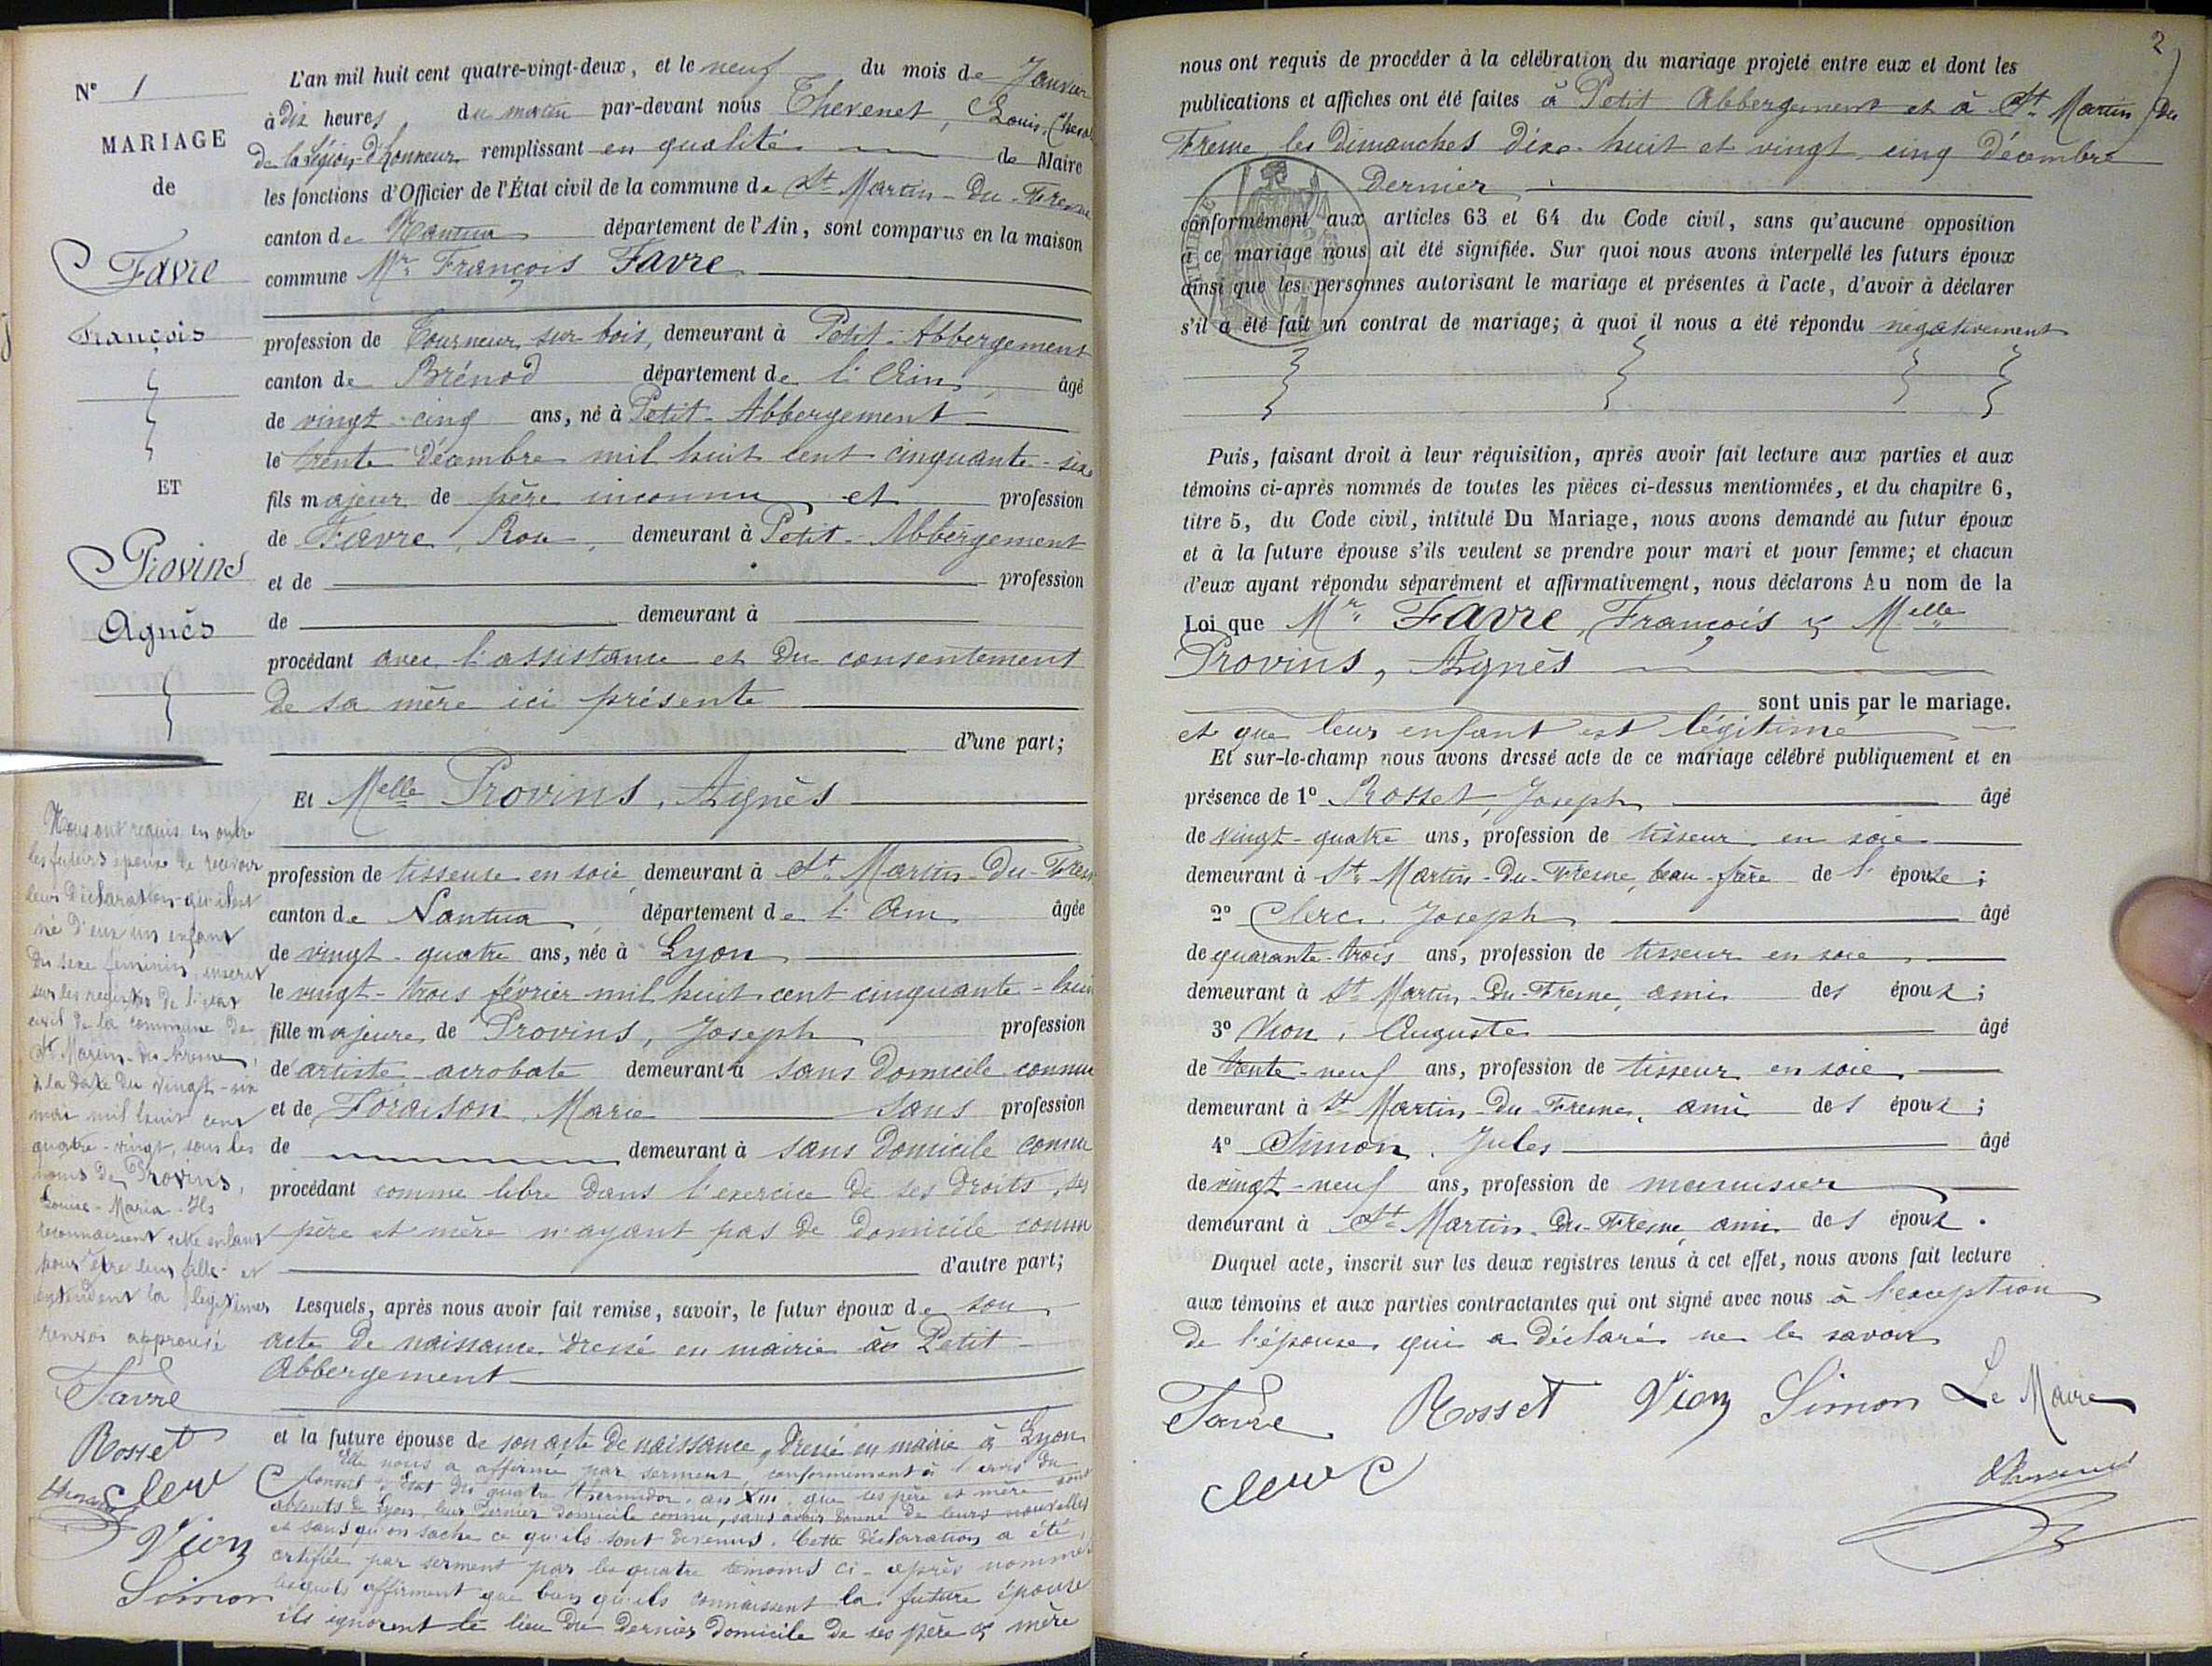 N° 1
MARIAGE
de
Favre
François
ET
Provins
Agnès
L'an mil huit cent quatre-vingt-deux, et le neuf du mois de Janvier
à dix heures du matin par-devant nous Thevenet, Louis, Cheval
de la légion-d'honneur remplissant en qualité de Maire
les fonctions d'Officier de l'État civil de la commune de St Martin-du-Fresne
canton de Nantua département de l'Ain, sont comparus en la maison
commune Mr François Favre
profession de Tourneur sur bois, demeurant à Petit-Abbergement
canton de Brénod département de l'Ain âgé
de vingt-cinq ans, né à Petit-Abbergement
le trente Décembre mil huit cent cinquante-six
fils majeur de père inconnu et profession
de Favre, Rose, demeurant à Petit-Abbergement
et de profession
de demeurant à
procédant avec l'assistance et du consentement
de sa mère ici présente
d'une part;
Et Melle Provins, Agnès
profession de tisseuse en soie demeurant à St Martin-du-Fresn
canton de Nantua département de l'Ain âgée
de vingt-quatre ans, née à Lyon
le vingt-trois février mil huit cent cinquante-huit
fille majeure de Provins, Joseph profession
de artiste acrobate demeurant à sans domicile connu
et de Foraison Marie sans profession
de demeurant à sans domicile connu
procédant comme libre dans l'exercice de ses droits, ses
père et mère n'ayant pas de domicile connu
d'autre part;
Lesquels, après nous avoir fait remise, savoir, le futur époux de son
acte de naissance dressé en mairie au Petit-
Abbergement
et la future épouse de son acte de naissance, dressé en mairie à Lyon
Elle nous a affirmé par serment, conformément à l'avis du
Conseil d'État du quatre thermidor, an XIII, que ses père et mère sont
absents de Lyon, leur dernier domicile connu, sans avoir donné de leurs nouvelles
et sans qu'on sache ce qu'ils sont devenus. Cette déclaration a été
certifiée par serment par les quatre témoins ci-après nommés
lesquels affirment que bien qu'ils connaissent la future épouse
ils ignorent le lieu du dernier domicile de ses père et mère
Nous ont requis en outre
les futurs époux de recevoir
leur déclaration qu'il est
né d'eux un enfant
du sexe féminin, inscrit
sur les registres de l'état
civil de la commune de
St Martin-du-Fresne,
à la date du vingt-six
mai mil huit cent
quatre-vingt, sous les
noms de Provins,
Louise-Maria. Ils
reconnaissent cette enfant
pour être leur fille et
entendent la légitimer
renvoi approuvé
Favre
Rosset
Clerc
Vion
Simon
2
nous ont requis de procéder à la célébration du mariage projeté entre eux et dont les
publications et affiches ont été faites à Petit Abbergement et à St Martin du
Fresne les dimanches dix-huit et vingt cinq décembre
dernier
conformément aux articles 63 et 64 du Code civil, sans qu'aucune opposition
à ce mariage nous ait été signifiée. Sur quoi nous avons interpellé les futurs époux
ainsi que les personnes autorisant le mariage et présentes à l'acte, d'avoir à déclarer
s'il a été fait un contrat de mariage; à quoi il nous a été répondu négativement
Puis, faisant droit à leur réquisition, après avoir fait lecture aux parties et aux
témoins ci-après nommés de toutes les pièces ci-dessus mentionnées, et du chapitre 6,
titre 5, du Code civil, intitulé Du Mariage, nous avons demandé au futur époux
et à la future épouse s'ils veulent se prendre pour mari et pour femme; et chacun
d'eux ayant répondu séparément et affirmativement, nous déclarons Au nom de la
Loi que Mr Favre, François & Melle
Provins, Agnès
sont unis par le mariage.
et que leur enfant est légitimé
Et sur-le-champ nous avons dressé acte de ce mariage célébré publiquement et en
présence de 1° Rosset, Joseph âgé
de vingt-quatre ans, profession de tisseur en soie
demeurant à St Martin-du-Fresne, beau-frère de l'épouse;
2° Clerc, Joseph âgé
de quarante-trois ans, profession de tisseur en soie,
demeurant à St Martin-du-Fresne, ami des époux;
3° Vion, Auguste âgé
de trente-neuf ans, profession de tisseur en soie,
demeurant à St Martin-du-Fresne, ami des époux;
4° Simon, Jules âgé
de vingt-neuf ans, profession de menuisier
demeurant à St Martin-du-Fresne ami des époux.
Duquel acte, inscrit sur les deux registres tenus à cet effet, nous avons fait lecture
aux témoins et aux parties contractantes qui ont signé avec nous à l'exception
de l'épouse qui a déclaré ne le savoir
Favre Rosset Vion Simon Le Maire
Clerc Thevenet